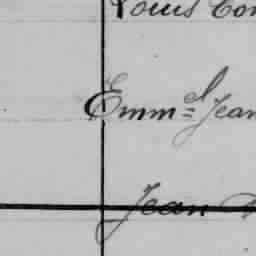 Louis Con
Emm=el Jean
Jean